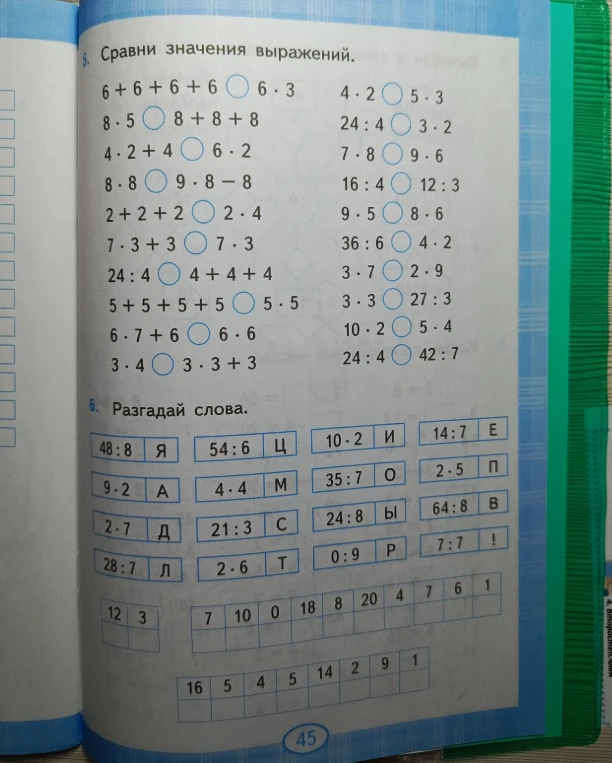 5. Сравни значения выражений.
6 + 6 + 6 + 6 ○ 6 · 3
8 · 5 ○ 8 + 8 + 8
4 · 2 + 4 ○ 6 · 2
8 · 8 ○ 9 · 8 − 8
2 + 2 + 2 ○ 2 · 4
7 · 3 + 3 ○ 7 · 3
24 : 4 ○ 4 + 4 + 4
5 + 5 + 5 + 5 ○ 5 · 5
6 · 7 + 6 ○ 6 · 6
3 · 4 ○ 3 · 3 + 3
4 · 2 ○ 5 · 3
24 : 4 ○ 3 · 2
7 · 8 ○ 9 · 6
16 : 4 ○ 12 : 3
9 · 5 ○ 8 · 6
36 : 6 ○ 4 · 2
3 · 7 ○ 2 · 9
3 · 3 ○ 27 : 3
10 · 2 ○ 5 · 4
24 : 4 ○ 42 : 7
6. Разгадай слова.
48 : 8 Я 54 : 6 Ц 10 · 2 И 14 : 7 Е
9 · 2 А 4 · 4 М 35 : 7 О 2 · 5 П
2 · 7 Д 21 : 3 С 24 : 8 Ы 64 : 8 В
28 : 7 Л 2 · 6 Т 0 : 9 Р 7 : 7 !
12 3 7 10 0 18 8 20 4 7 6 1
16 5 4 5 14 2 9 1
45